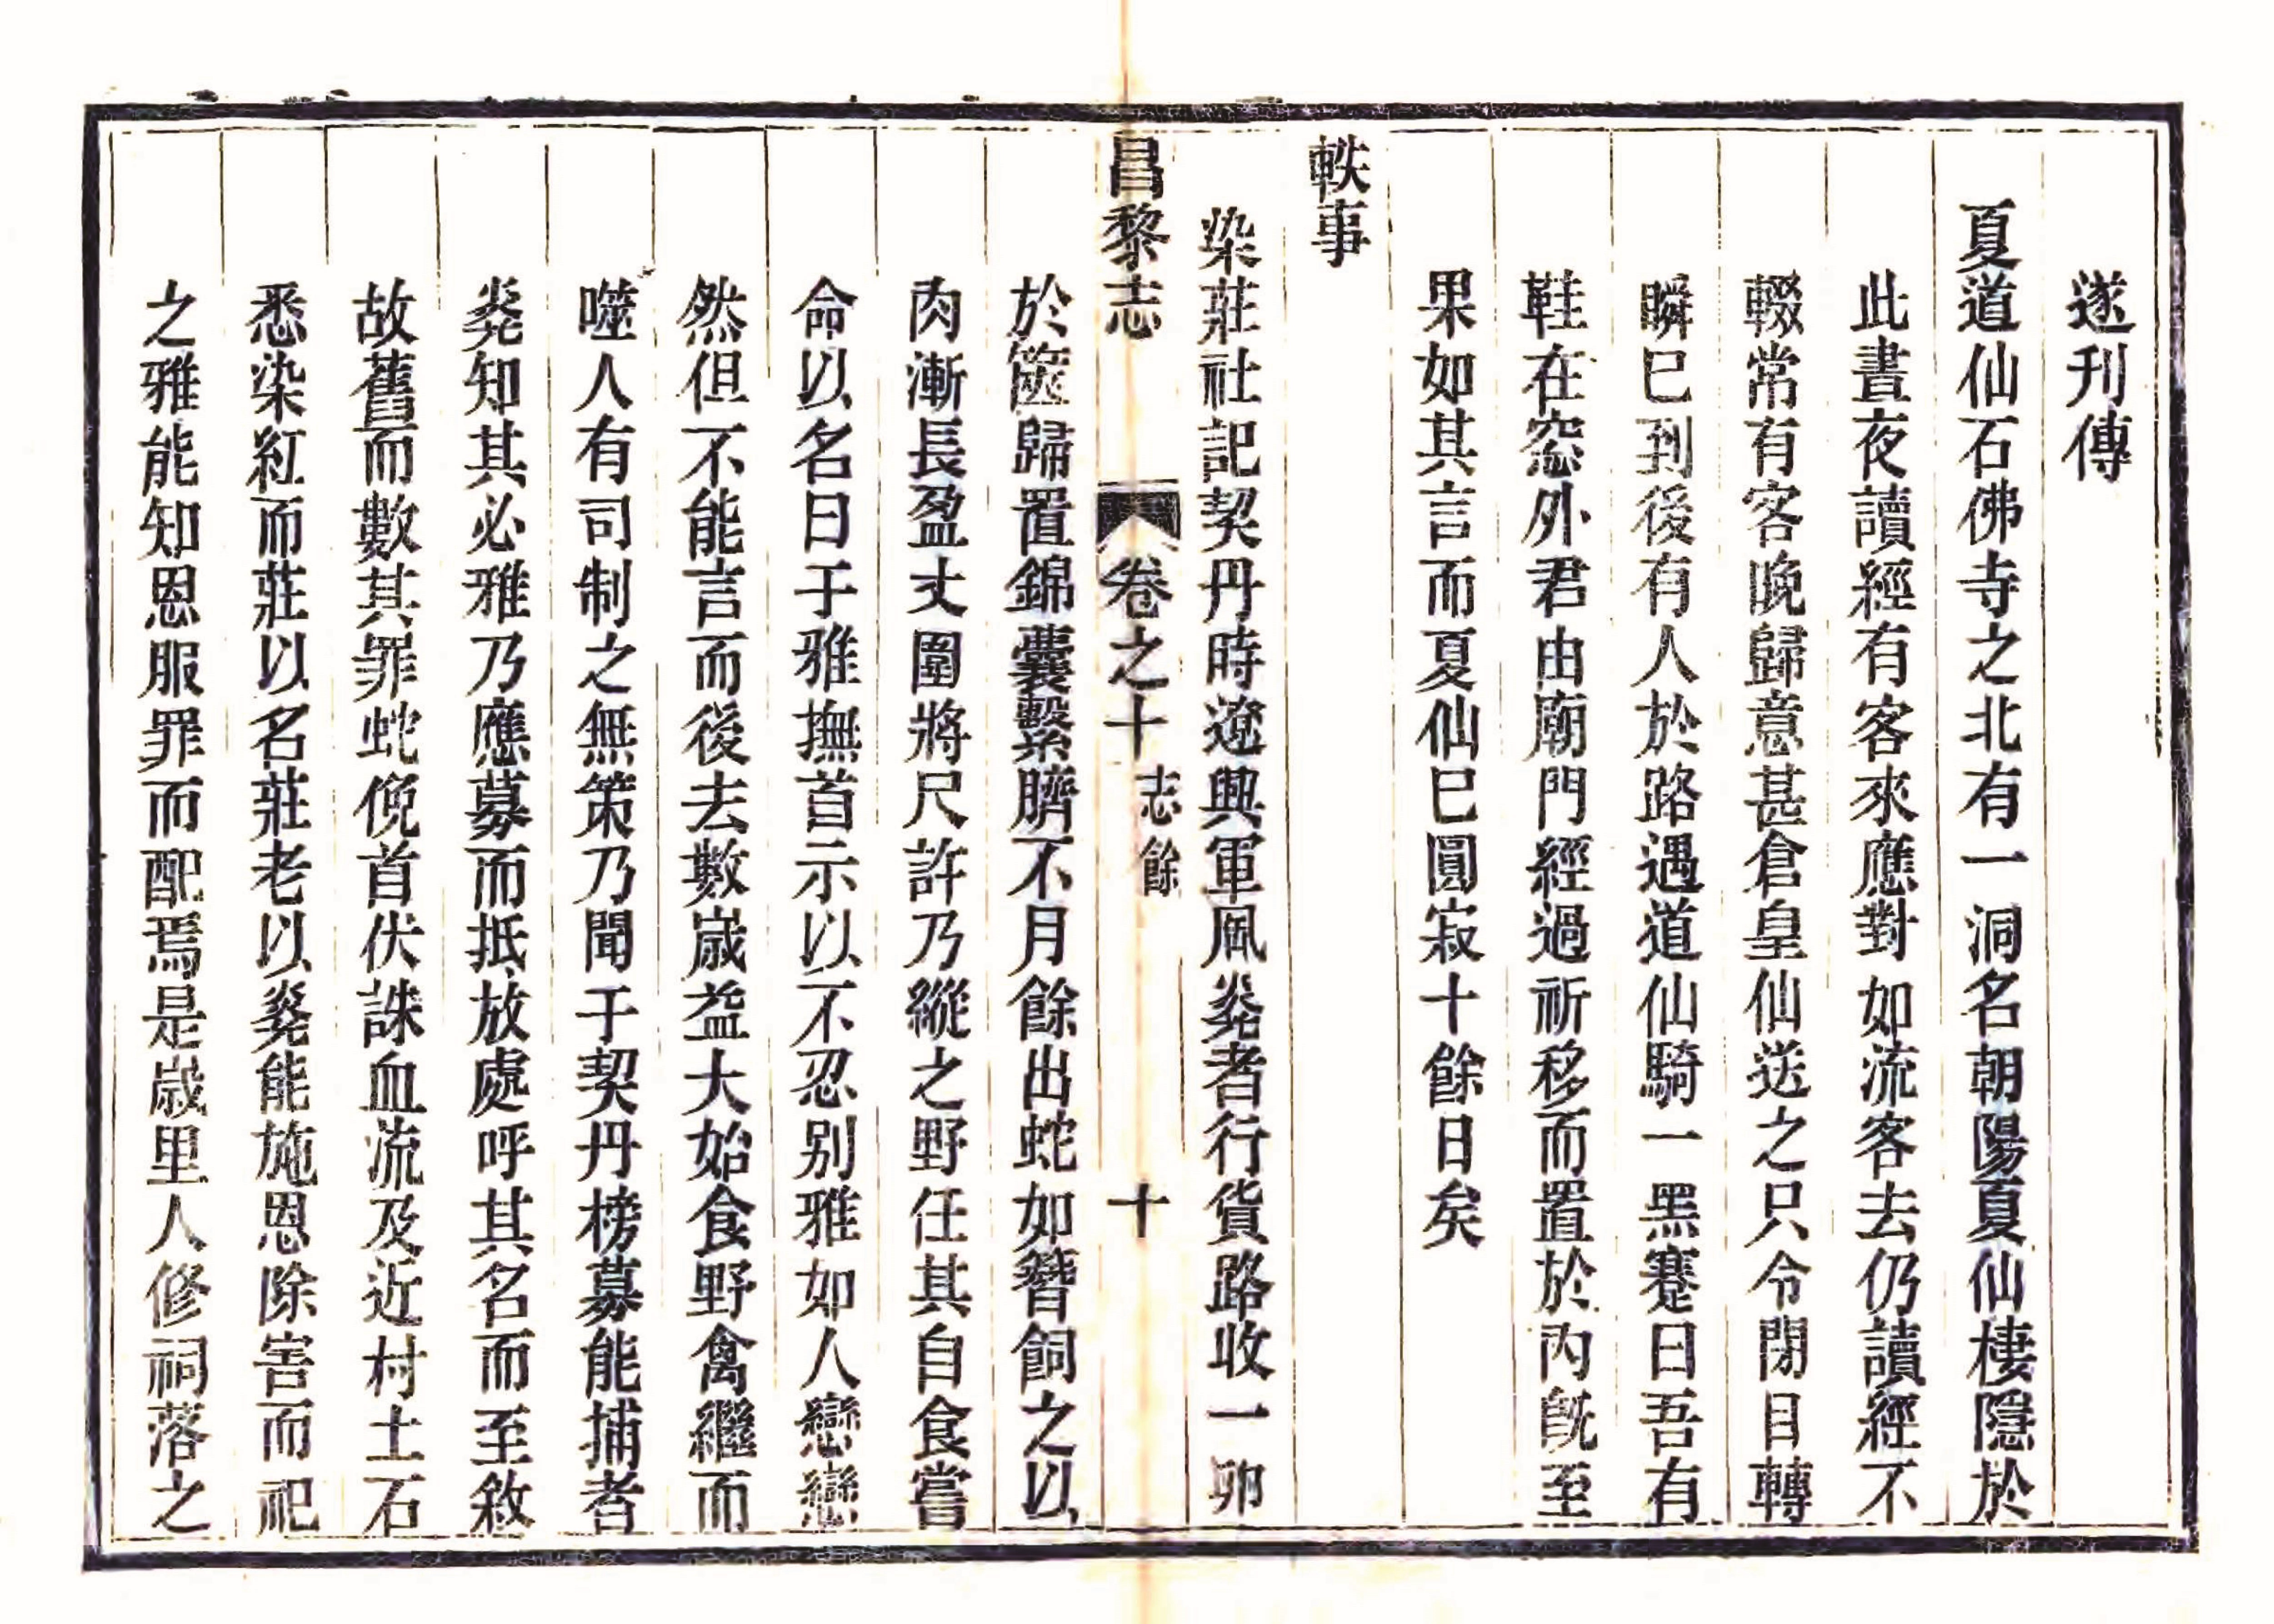 遂刋傳
夏道仙石佛寺之北有一洞名朝陽夏仙棲隱於
此晝夜讀經有客來應對如流客去仍讀經不
輟常有客晚歸意甚倉皇仙送之只令閉目轉
瞬巳到後有人於路遇道仙騎一黑蹇曰吾有
鞋在窓外君由廟門經過祈移而置於內旣至
果如其言而夏仙巳圓寂十餘日矣
軼事
染莊社記契丹時遼興軍風㷠者行貨路收一卵
昌黎志 卷之十 志餘 十
於篋歸置錦囊繫臍不月餘出蛇如簪飼之以
肉漸長盈丈圍將尺許乃縱之野任其自食嘗
命以名曰于雅撫首示以不忍别雅如人戀戀
然但不能言而後去數嵗益大始食野禽繼而
噬人有司制之無策乃聞于契丹榜募能捕者
㷠知其必雅乃應募而抵放處呼其名而至敘
故舊而數其罪蛇俛首伏誅血流及近村土石
悉染紅而莊以名莊老以㷠能施恩除害而祀
之雅能知恩服罪而配焉是嵗里人修祠落之